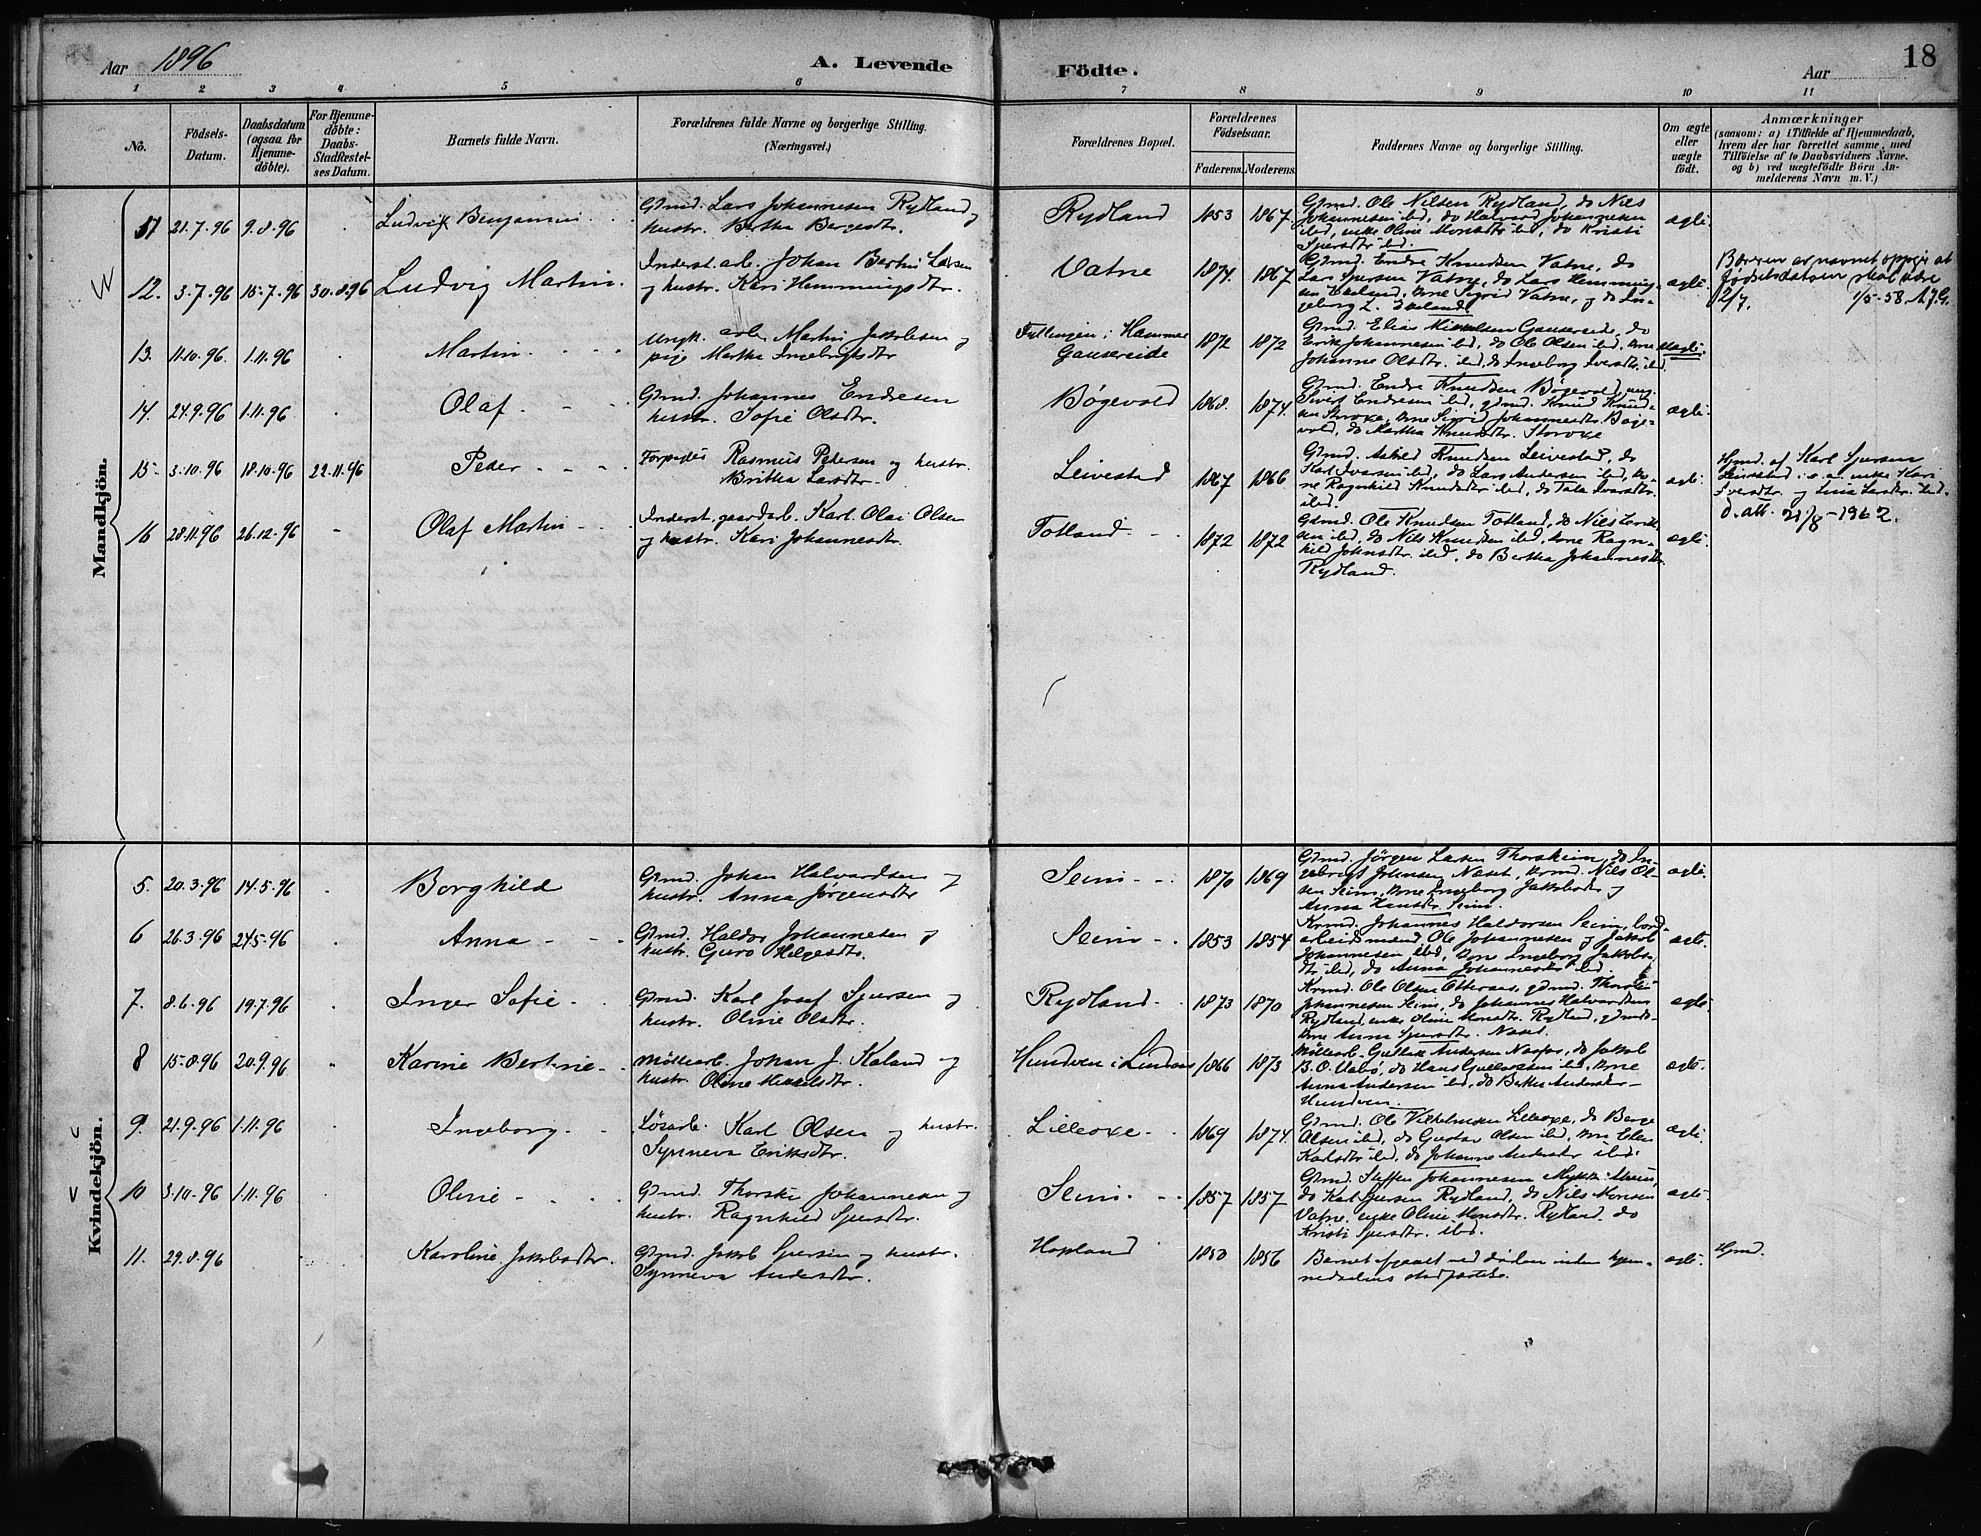 Aar 1896
A. Levende Födte.
Aar
18
1 2 3 4 5 6 7 8 9 10 11
No.
Födsels-Datum.
Daabsdatum (ogsaa for Hjemme-döbte).
For Hjemme-döbte: Daabs-Stadfæstel-ses Datum.
Barnets fulde Navn.
Forældrenes fulde Navne og borgerlige Stilling.
(Næringsvei.)
Forældrenes Bopæl.
Forældrenes Födselsaar.
Faderens. Moderens.
Faddernes Navne og borgerlige Stilling.
Om ægte eller uægte födt.
Anmærkninger
(saasom: a) i Tilfælde af Hjemmedaab,
hvem der har forrettet samme, med
Tilföielse af to Daabsvidners Navne,
og b) ved uægtefödte Börn An-
melderens Navn m. V.)
Mandkjön.
11 21.7.96 9.8.96 Ludvig Benjamin
Gbmd. Lars Johannesen Rydland og
hustr. Bertha Børgesdtr.
Rydland 1853 1867
Gbmd. Ole Nilsen Rydland, do Nils
Johannesen ibd, do Halvard Johannesen
ibd, enke Oline Monsdtr ibd, do Kristi
Sjursdtr ibd.
ægte.
12. 3.7.96 15.7.96 30.8.96 Ludvig Martin.
Inderst. arb. Johan Bertin Larsen
og hustr. Kari Hemmingsdtr.
Vatne 1874. 1867
Gbmd. Endre Knudsen Vatne, do
Lars Sjursen Vatne, do Lars Hemming-
Sigrid Vatne, og do In-
geborg L.
ægte.
Bæreren av navnet oppgir at
fødselsdatoen skal være
2/7. 1/5-58. A.J.G.
13. 11.10.96. 1.11.96 Martin.
Ungk. arb. Martin Jakobsen og
pige Martha Ingebrigtsdtr
Fyllingen i Hammer
Gausereide
1872 1872
Gbmd. Elias Gausereide, do
Erik Johannesen ibd, do Ole Olsen ibd, kone
Johanne Olsdtr. ibd, do Ingeborg Iversdtr. ibd.
uægte.
14. 24.9.96 1.11.96 Olaf
Gbmd. Johannes Endresen
hustr. Sofie Olsdtr.
Bøgevold 1868. 1874.
Gbmd. Endre Knudsen Bøgevold, ung.
Sivert Endresen ibd, gbmd. Knud Knud-
sen Storoxe, kone Sigrid Johannesdtr. Bøge-
vold, do Martha Knudsdtr. Storoxe
ægte.
15. 3.10.96 18.10.96 22.11.96 Peter
Rasmus Petersen og hustr.
Britha Larsdtr.
Leivestad 1867 1866
Gbmd. Askild Knudsen Leivestad, do
Karl Ivarsen ibd, do Lars Andersen ibd, ko-
ne Ragnhild Knudsdtr ibd, do Tala Ivarsdtr.
ibd.
ægte.
Hjmd. af Karl Sjursen
Leivestad enke Kari
Iversdtr og Lina Larsdtr. ibd.
d. att. 21/8-1962.
16 28.11.96 26.12.96 Olaf Martin
Inderst. gaardarb. Karl Olai Olsen
og hustr. Kari Johannesdtr.
Totland 1872 1872
Gbmd. Ole Knudsen Totland, do Nils Larik-
sen ibd, do Nils Knudsen ibd, kone Ragn-
hild Johnsdtr. ibd, do Bertha Johannesdtr
Rydland.
ægte.
Kvindekjön.
5. 20.3.96 14.5.96 Borghild
Gbmd. Johan Halvardsen og
hustr. Anna Jørgensdtr
Seim 1870 1869
Gbmd. Jørgen Larsen Thorsheim, do In-
gebrigt Johnsen Naset, krmd. Nils Ol-
sen Seim, kone Ingeborg Jakobsdtr og
Anna Hansdtr. Seim.
ægte.
6 26.3.96 24.5.96 Anna
Gbmd. Haldor Johannesen og
hustr. Guro Helgesdtr.
Seim 1853 1854
Krmd. Johannes Haldorsen Seim, jord-
arbeidsmænd. Ole Johannesen og Jakob
Johannesen ibd, kone Ingeborg Jakobs-
dtr ibd, do Anna Johannesdtr ibd.
ægte.
7. 8.6.96 19.7.96 Inger Sofie
Gbmd. Karl Josef Sjursen og
hustr. Oline Olsdtr.
Rydland 1873 1870
Krmd. Ole Olsen Otteraas, gbmd. Thorlei
Johannesen Seim, do Johannes Halvardsen
Rydland, enke Oline Monsdtr. Rydland, gbmds-
kone Anna Sjursdtr. Naset.
ægte
8 15.8.96 20.9.96 Karine Bertine
Møllearb. Johan J. Kaland og
hustr. Oline Mikkelsdtr.
Hundven i Lindaas 1866 1873
Møllearb. Gullak Andersen Nasfos, do Jakob
B. O. Valø, do Hans Gullaksen ibd, kone
Anna Andersen ibd, do Berthe Andersdtr
Hundven.
ægte.
9. 21.9.96 1.11.96 Ingeborg
Løsarb. Karl Olsen og hustr.
Synneva Eriksdtr.
Lilleoxe 1869 1874.
Gbmd. Ole Vilhelmsen Lilleoxe, do Børge
Olsen ibd, do Gustav Olsen ibd, kone Elen
Karlsdtr ibd, do Johanne Andersdtr ibd.
ægte.
10 3.10.96 1.11.96 Oline
Gbmd. Thorske Johannesen og
hustr. Ragnhild Sjursdtr.
Seim. 1857 1857
Gbmd. Steffen Johannesen
do Karl Sjursen Rydland, do Nils Monsen
Vatne, enke Oline Monsdtr. Rydland, do
Kristi Sjursdtr. ibd.
ægte.
11. 29.8.96 Karoline Jakobsdtr.
Gbmd. Jakob Sjursen og hustr.
Synneva Andersdtr.
Hopland 1850 1856
Barnet afgaaet ved døden inden hjem-
medaabens stadfæstelse.
ægte.
Hjmd.